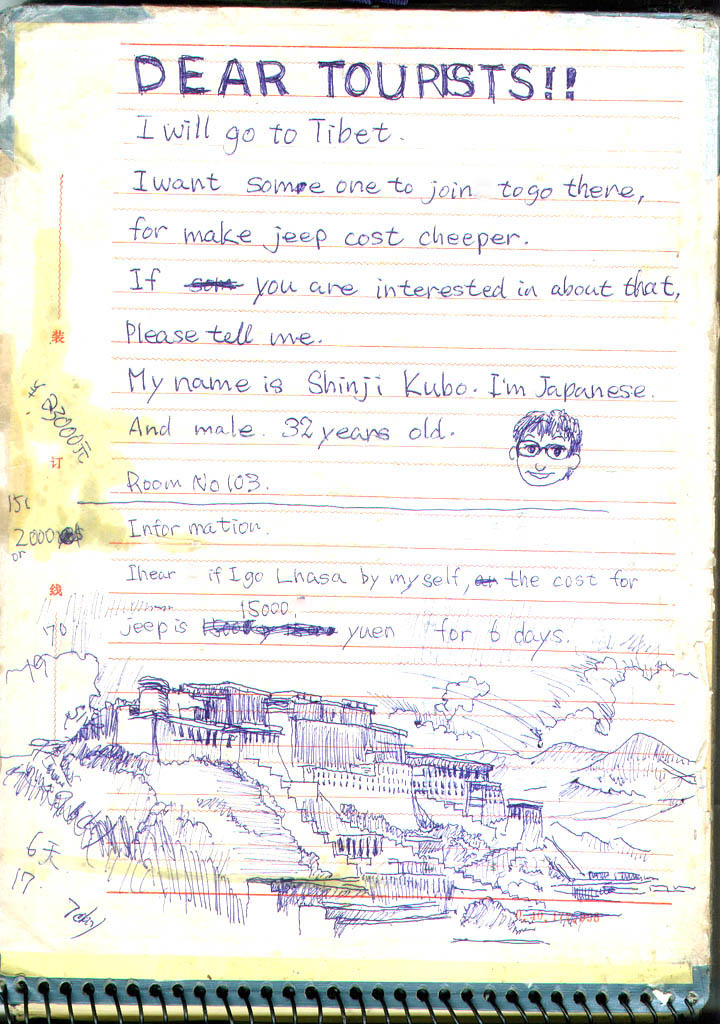 DEAR TOURISTS!!
I will go to Tibet.
I want some one to join to go there,
for make jeep cost cheeper.
If you are interested in about that,
Please tell me.
My name is Shinji Kubo. I'm Japanese.
And male. 32 years old.
Room No 103.
Information.
I hear if I go Lhasa by myself, the cost for
15000
jeep is yuen for 6 days.
装
订
线
23000元
2000
or
70
6天
17